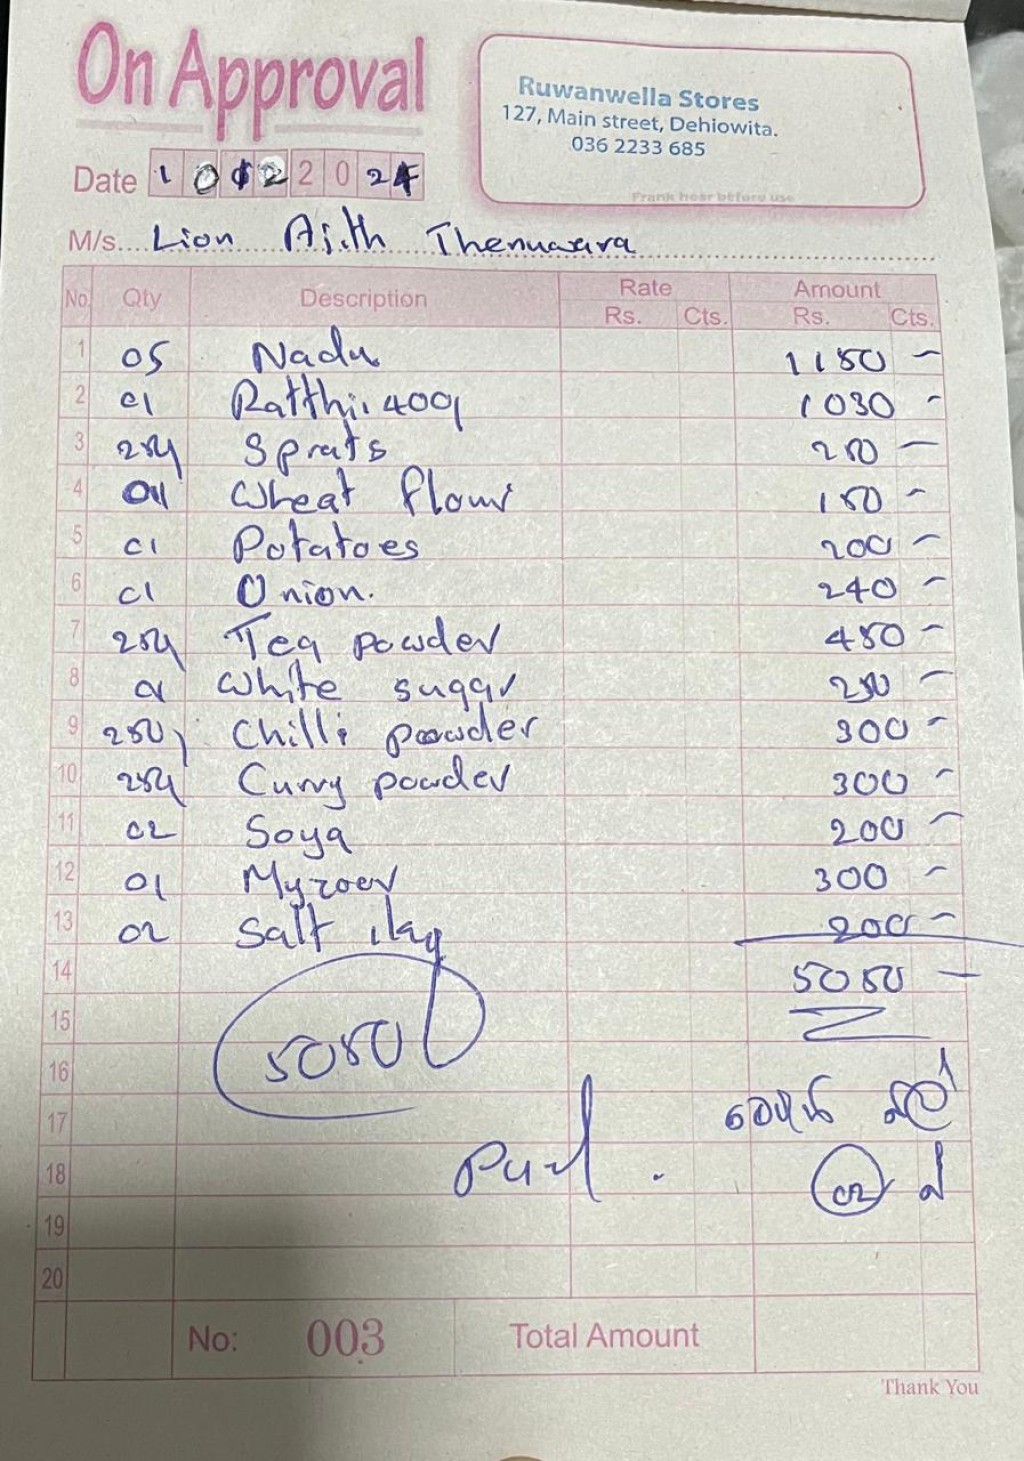 On Approval
Ruwanwella Stores
127, Main street, Dehiowita.
036 2233 685
Frank hear before use
Date 1 0 2 2 0 2 4
M/s. Lion Ajith Thenuwara
No. Qty Description Rate Amount
Rs. Cts. Rs. Cts.
1 05 Nadu 1150 -
2 01 Ratthi 400g 1030 -
3 Sprats 250 -
4 01 Wheat flour 150 -
5 01 Potatoes 200 -
6 01 Onion. 240 -
7 Tea powder 450 -
8 01 White sugar 250 -
9 250g Chilli powder 300 -
10 Curry powder 300 -
11 02 Soya 200 -
12 01 300 -
13 02 Salt 1kg 200 -
14 5050 -
15
5050
16
17
18 02
19
20
No: 003 Total Amount
Thank You